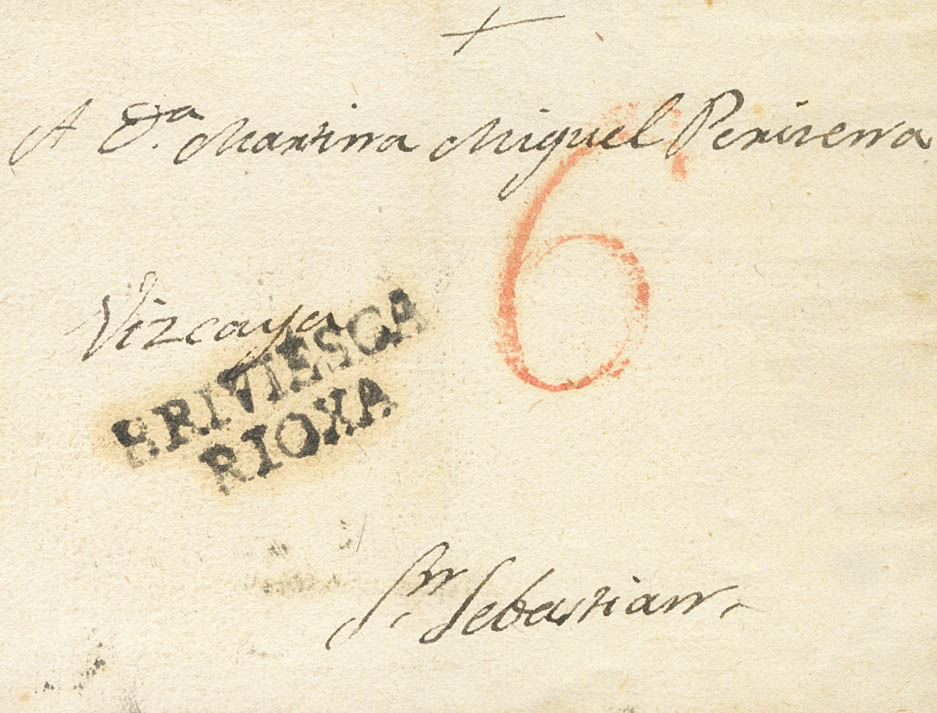 A D.ª Martina Miguel Periserra
6
Vizcaya
BRIVIESCA
RIOXA
Sn. Sebastian